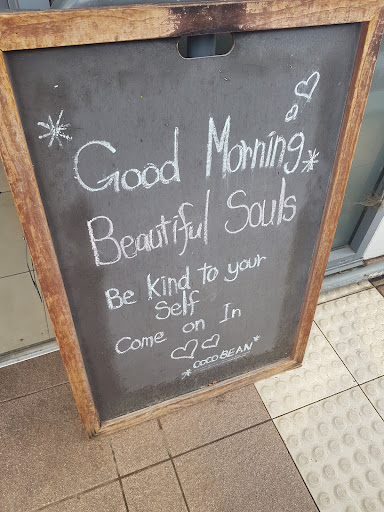 Good Morning
Beautiful Souls
Be kind to your
Self
Come on In
*COCO BEAN*